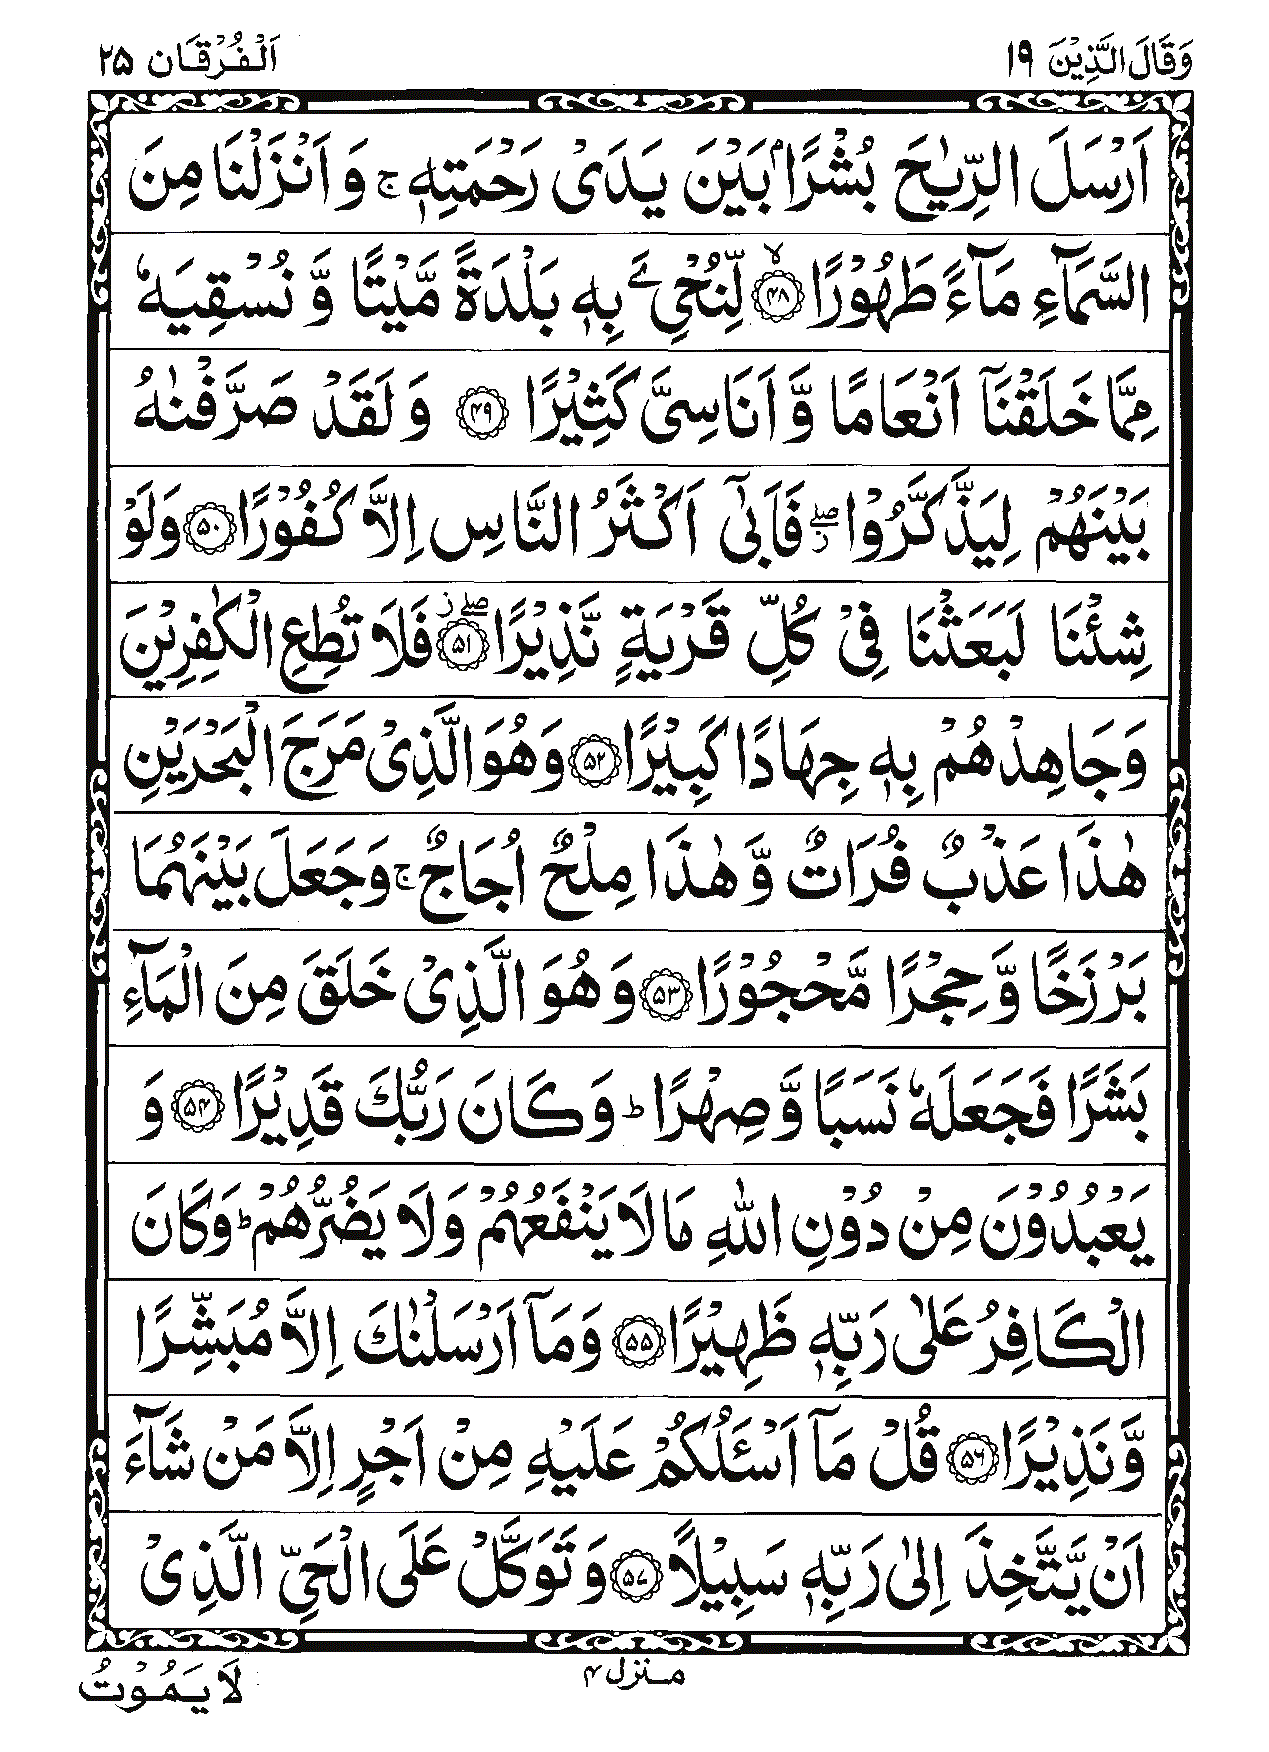 وَقَالَ الَّذِیْنَ ۱۹
اَلْفُرْقَان ۲۵
اَرْسَلَ الرِّیٰحَ بُشْرًۢا بَیْنَ یَدَیْ رَحْمَتِهٖ ۚ وَ اَنْزَلْنَا مِنَ
السَّمَآءِ مَآءً طَهُوْرًا ۙ﴿۴۸﴾ لِّنُحْیِۦَ بِهٖ بَلْدَةً مَّیْتًا وَّ نُسْقِیَهٗ
مِمَّا خَلَقْنَاۤ اَنْعَامًا وَّ اَنَاسِیَّ كَثِیْرًا ﴿۴۹﴾ وَ لَقَدْ صَرَّفْنٰهُ
بَیْنَهُمْ لِیَذَّكَّرُوْا ۖؗ فَاَبٰۤی اَكْثَرُ النَّاسِ اِلَّا كُفُوْرًا ﴿۵۰﴾ وَلَوْ
شِئْنَا لَبَعَثْنَا فِیْ كُلِّ قَرْیَةٍ نَّذِیْرًا ۖؗ﴿۵۱﴾ فَلَا تُطِعِ الْكٰفِرِیْنَ
وَجَاهِدْهُمْ بِهٖ جِهَادًا كَبِیْرًا ﴿۵۲﴾ وَهُوَ الَّذِیْ مَرَجَ الْبَحْرَیْنِ
هٰذَا عَذْبٌ فُرَاتٌ وَّ هٰذَا مِلْحٌ اُجَاجٌ ۚ وَجَعَلَ بَیْنَهُمَا
بَرْزَخًا وَّ حِجْرًا مَّحْجُوْرًا ﴿۵۳﴾ وَ هُوَ الَّذِیْ خَلَقَ مِنَ الْمَآءِ
بَشَرًا فَجَعَلَهٗ نَسَبًا وَّ صِهْرًا ؕ وَ كَانَ رَبُّكَ قَدِیْرًا ﴿۵۴﴾ وَ
یَعْبُدُوْنَ مِنْ دُوْنِ اللّٰهِ مَا لَا یَنْفَعُهُمْ وَلَا یَضُرُّهُمْ ؕ وَكَانَ
الْكَافِرُ عَلٰی رَبِّهٖ ظَهِیْرًا ﴿۵۵﴾ وَمَاۤ اَرْسَلْنٰكَ اِلَّا مُبَشِّرًا
وَّ نَذِیْرًا ﴿۵۶﴾ قُلْ مَاۤ اَسْـَٔلُكُمْ عَلَیْهِ مِنْ اَجْرٍ اِلَّا مَنْ شَآءَ
اَنْ یَّتَّخِذَ اِلٰی رَبِّهٖ سَبِیْلًا ﴿۵۷﴾ وَ تَوَكَّلْ عَلَی الْحَیِّ الَّذِیْ
منزل ۴
لَا یَمُوْتُ